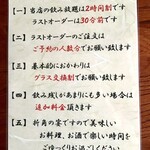 【一】当店の飲み放題は２時間制です
ラストオーダーは30分前です
【二】ラストオーダーのご注文は
ご予約の人数台でお願い致します
【三】基本的におかわりは
グラス交換制でお願い致します
【四】飲み残しがあまりにも多い場合は
追加料金頂きます
【五】折角の宴ですので美味しい
お料理、お酒で楽しい時間を
ごゆっくりお過ごしください